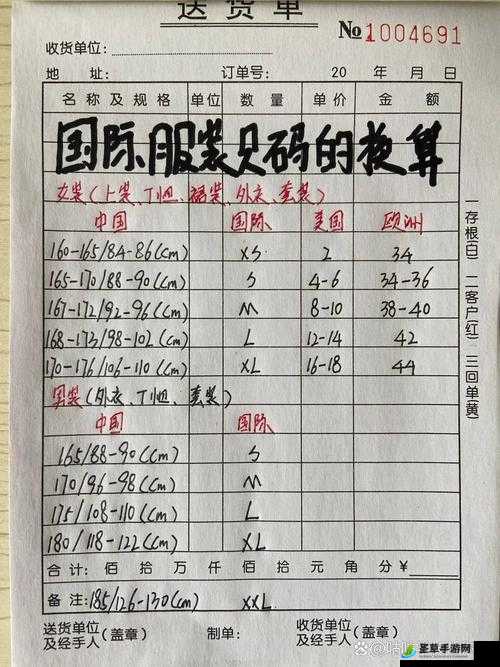 送货单
№1004691
收货单位:
地 址: 订单号: 20 年 月 日
名称及规格 单位 数量 单价 金额
国际服装尺码的换算
女装(上装、T恤、裙装、外衣、套装)
中国 国际 美国 欧洲
160-165/84-86(cm) XS 2 34
165-170/88-90(cm) S 4-6 34-36
167-172/92-96(cm) M 8-10 38-40
168-173/98-102(cm) L 12-14 42
170-176/106-110(cm) XL 16-18 44
男装(外衣、T恤、套装)
中国 国际
165/88-90(cm) S
170/96-98(cm) M
175/108-110(cm) L
180/118-122(cm) XL
合计: 佰 拾 万 仟 佰 拾 元 角 分 ¥
备注: 185/126-130(cm) XXL
送货单位及经手人(盖章) 制单: 收货单位及经手人(盖章)
一存根(白) 二客户(红) 三回单(黄)
圣草手游网